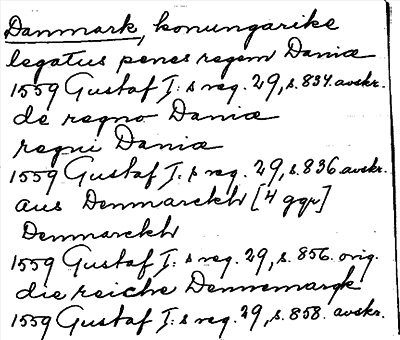 Danmark, konungarike
legatus penes regem Daniæ
1559 Gustaf I:s reg. 29, s. 834. avskr.
de regno Daniæ
regni Daniæ
1559 Gustaf I:s reg. 29, s. 836 avskr.
aus Denmarckh [4 ggr]
Denmarckh
1559 Gustaf I:s reg. 29, s. 856. orig.
die reiche Dennemargk
1559 Gustaf I:s reg. 29, s. 858. avskr.